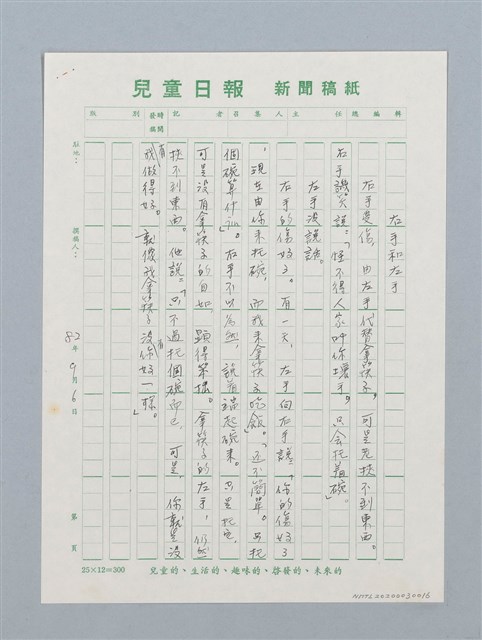 兒童日報 新聞稿紙
版別 發稿時間 記者 召集人 主任 總編輯
右手和左手
右手受傷,由左手代替拿筷子。可是老挾不到東西。
右手譏笑說:「怪不得人家叫你壞手,只會托著碗。」
左手沒說話。
右手的傷好了。有一天,左手向右手說:「你的傷好了
,現在由你來托碗,而我來拿筷子吃飯。」「還不簡單。」
個碗算什
右手不以為然,說著端起碗來。只是托
可是沒有拿筷子的自如,顯得笨拙。拿筷子的左手,仍然
挾不到東西。他說:「只不過托個碗而已,可是,你就是沒有
我做得好。就像我拿筷子沒有你好一樣。」
駐地: 撰稿人: 82年9月6日 第 頁
25×12=300 兒童的、生活的、趣味的、啓發的、未來的
NMTL20200030016